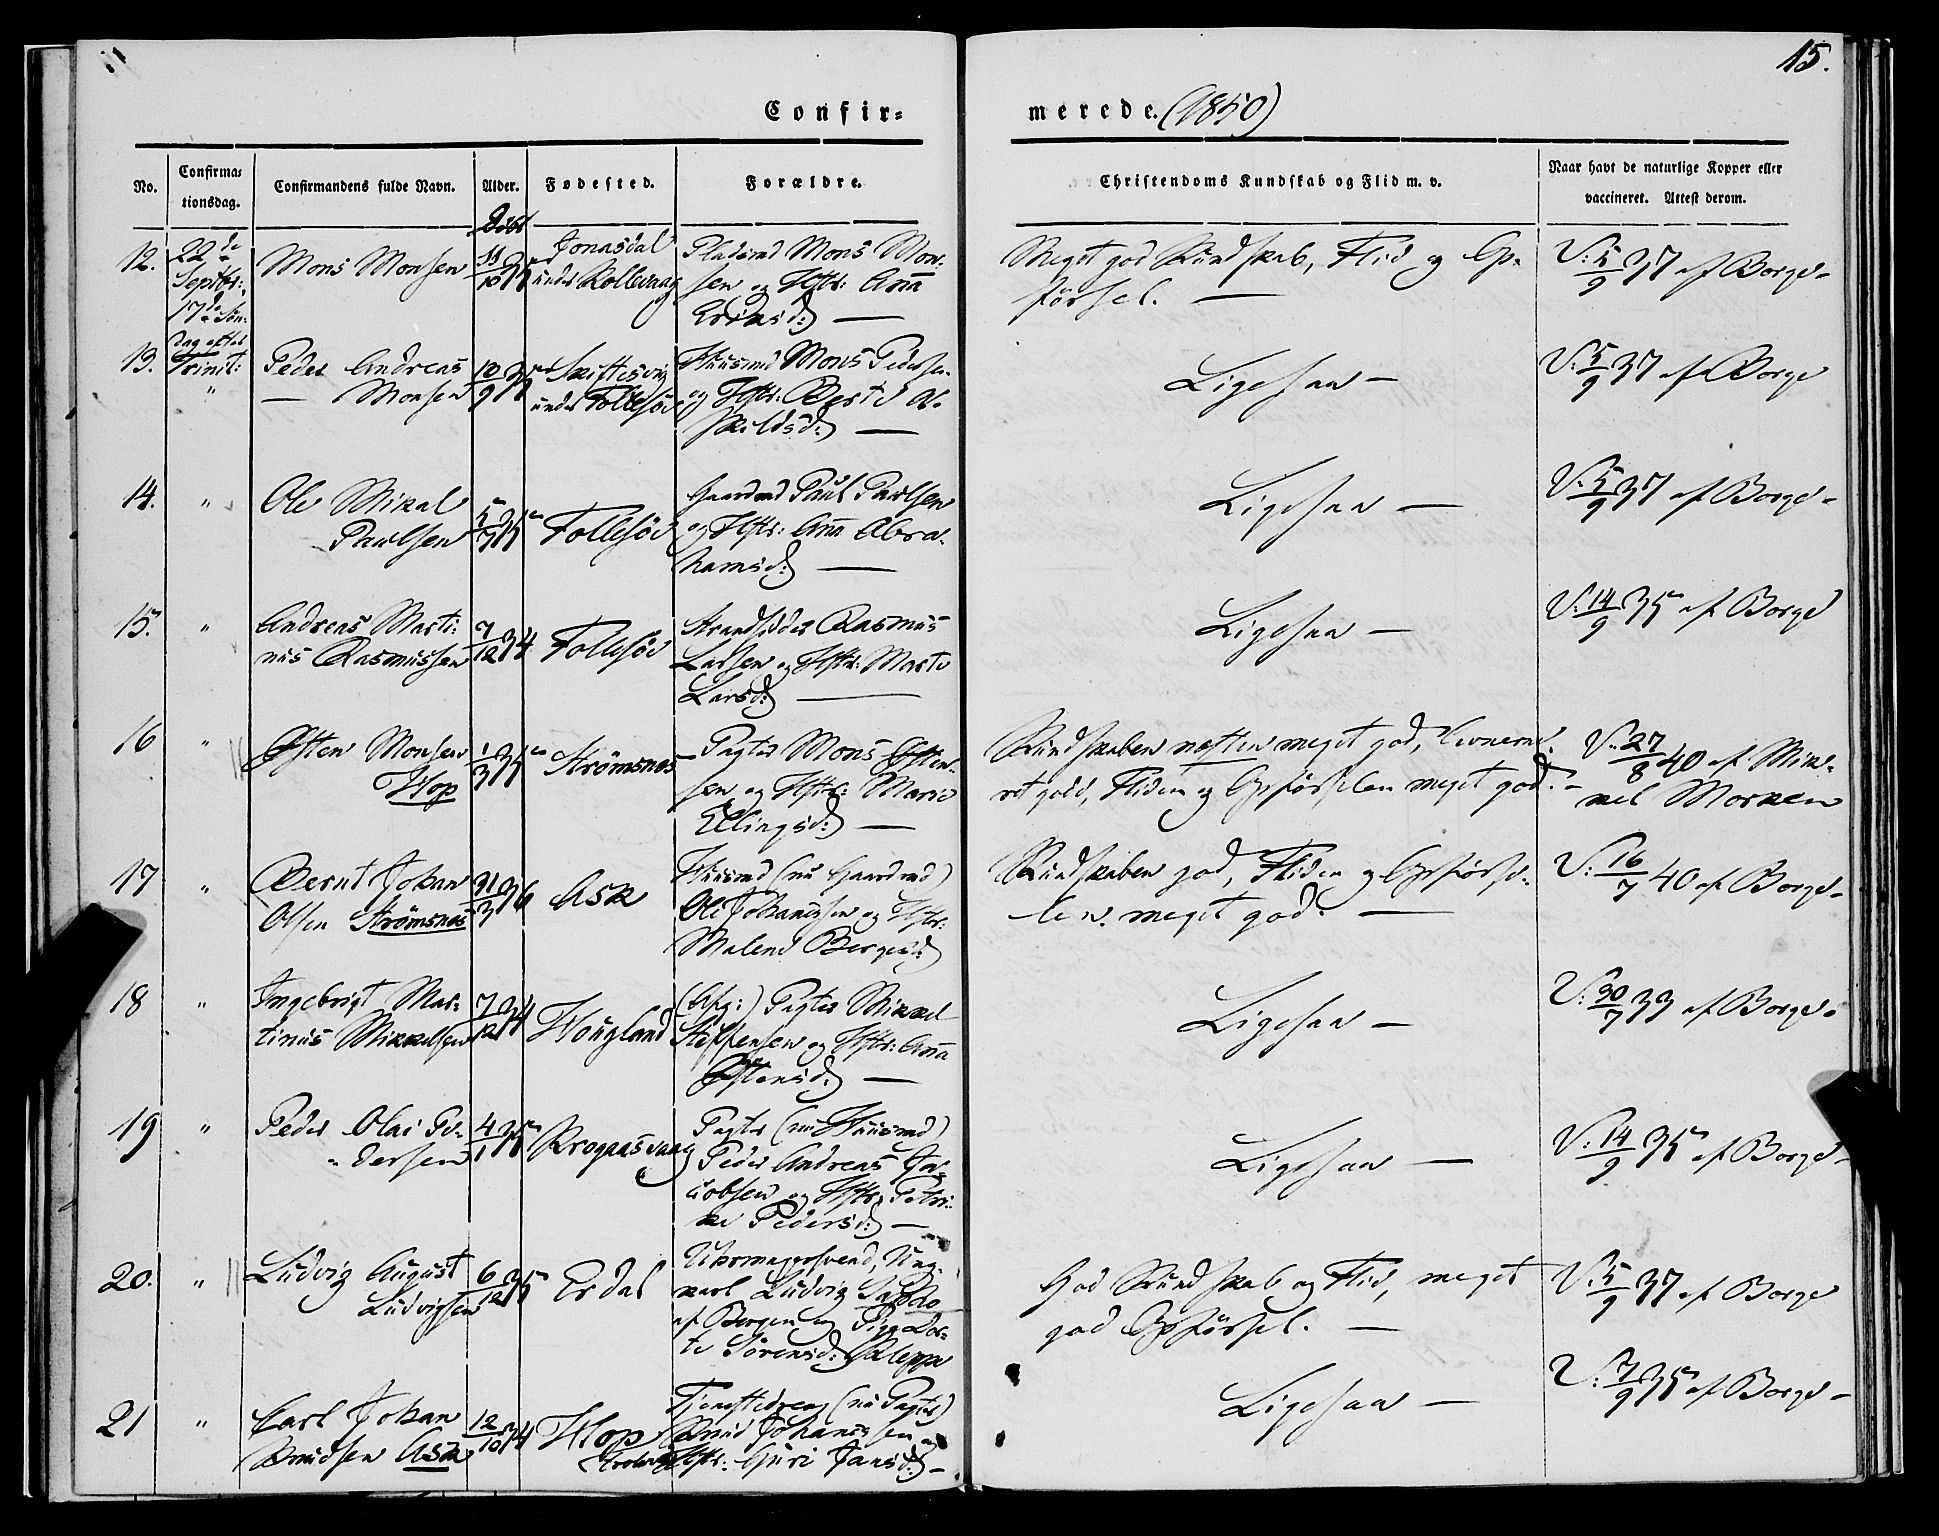 15.
Confir=
merede. (1850)
No.
Confirma=
tionsdag.
Confirmandens fulde Navn.
Alder.
Fødested.
Forældre.
Christendoms Kundskab og Flid m. v.
Naar havt de naturlige Kopper eller
vaccineret. Attest derom.
Døbt
12.
22de
Septbr:,
17de Søn=
dag efter
Trinit:
Mons Monsen
11/10 35
Jonasdal
under Rollevaag
Pladsmd Mons Mon=
sen og Hstr: Anna
d:
Meget god Kundskab, Flid og Op=
førsel. —
V: 5/9 37 af Borge
13.
"
Peder Andreas
— Monsen
12/9 35
Skiftesvig
under Follesöe
Huusmd Mons Peders.
og Hstr: Berte A=
skilds d: —
Ligesaa —
V: 5/9 37 af Borge
14.
"
Ole Mikal
Paulsen
5/7 35
Follesöe
Gaardmd Paul Paulsen
og Hstr: Anna Abra=
hams d: —
Ligesaa —
V: 5/9 37 af Borge
15.
"
Andreas Marti=
nus Rasmussen
7/12 34
Follesöe
Strandsidder Rasmus
Larsen og Hstr: Marte
Lars d: —
Ligesaa —
V: 14/9 35 af Borge
16
"
Østen Monsen
Hop
1/3 35
Strömsnes
Pagter Mons Østen=
sen og Hstr: Marie
Ellings d: —
Kundskaben næsten meget god, Levnetet
god, Fliden og Opførselen meget god. —
V: 27/8 40 af Mik=
kel Morken
17
"
Bernt Johan
Olsen Strömsnes
31/3 36
Ask
Huusmd (nu Gaardmd)
Ole Johannessen og Hstr:
Malene Berges d:
Kundskaben god, Fliden og Opførse=
len meget god. —
V: 16/7 40 af Borge
18
"
Ingebrigt Mar=
tinus Mikkelsen
7/12 34
Hougland
(Afg:) Pagter Mikkel
Steffensen og Hstr: Anna
Østens d: —
Ligesaa —
V: 30/7 33 af Borge
19
"
Peder Olai Pe=
dersen
4/1 35
Krogaasvaag
Pagter (nu Huusmd)
Peder Andreas Ja=
cobsen og Hstr: Petri=
ke Peders d: —
Ligesaa —
V: 14/9 35 af Borge
20.
"
Ludvig August
Ludvigsen
6/12 35
Erdal
Uhrmagersvend, Ung=
karl Ludvig
af Bergen og Pige Dor=
te Sörens d: Kleppe
God Kundskab og Flid, meget
god Opførsel. —
V: 5/9 37 af Borge
21
"
Carl Johan
Knudsen Ask
12/10 34
Hop
Tjenestedreng (nu Pagter)
Knud Johannessen og
Hstr: Guri Jans d: —
Ligesaa —
V: 7/9 35 af Borge —